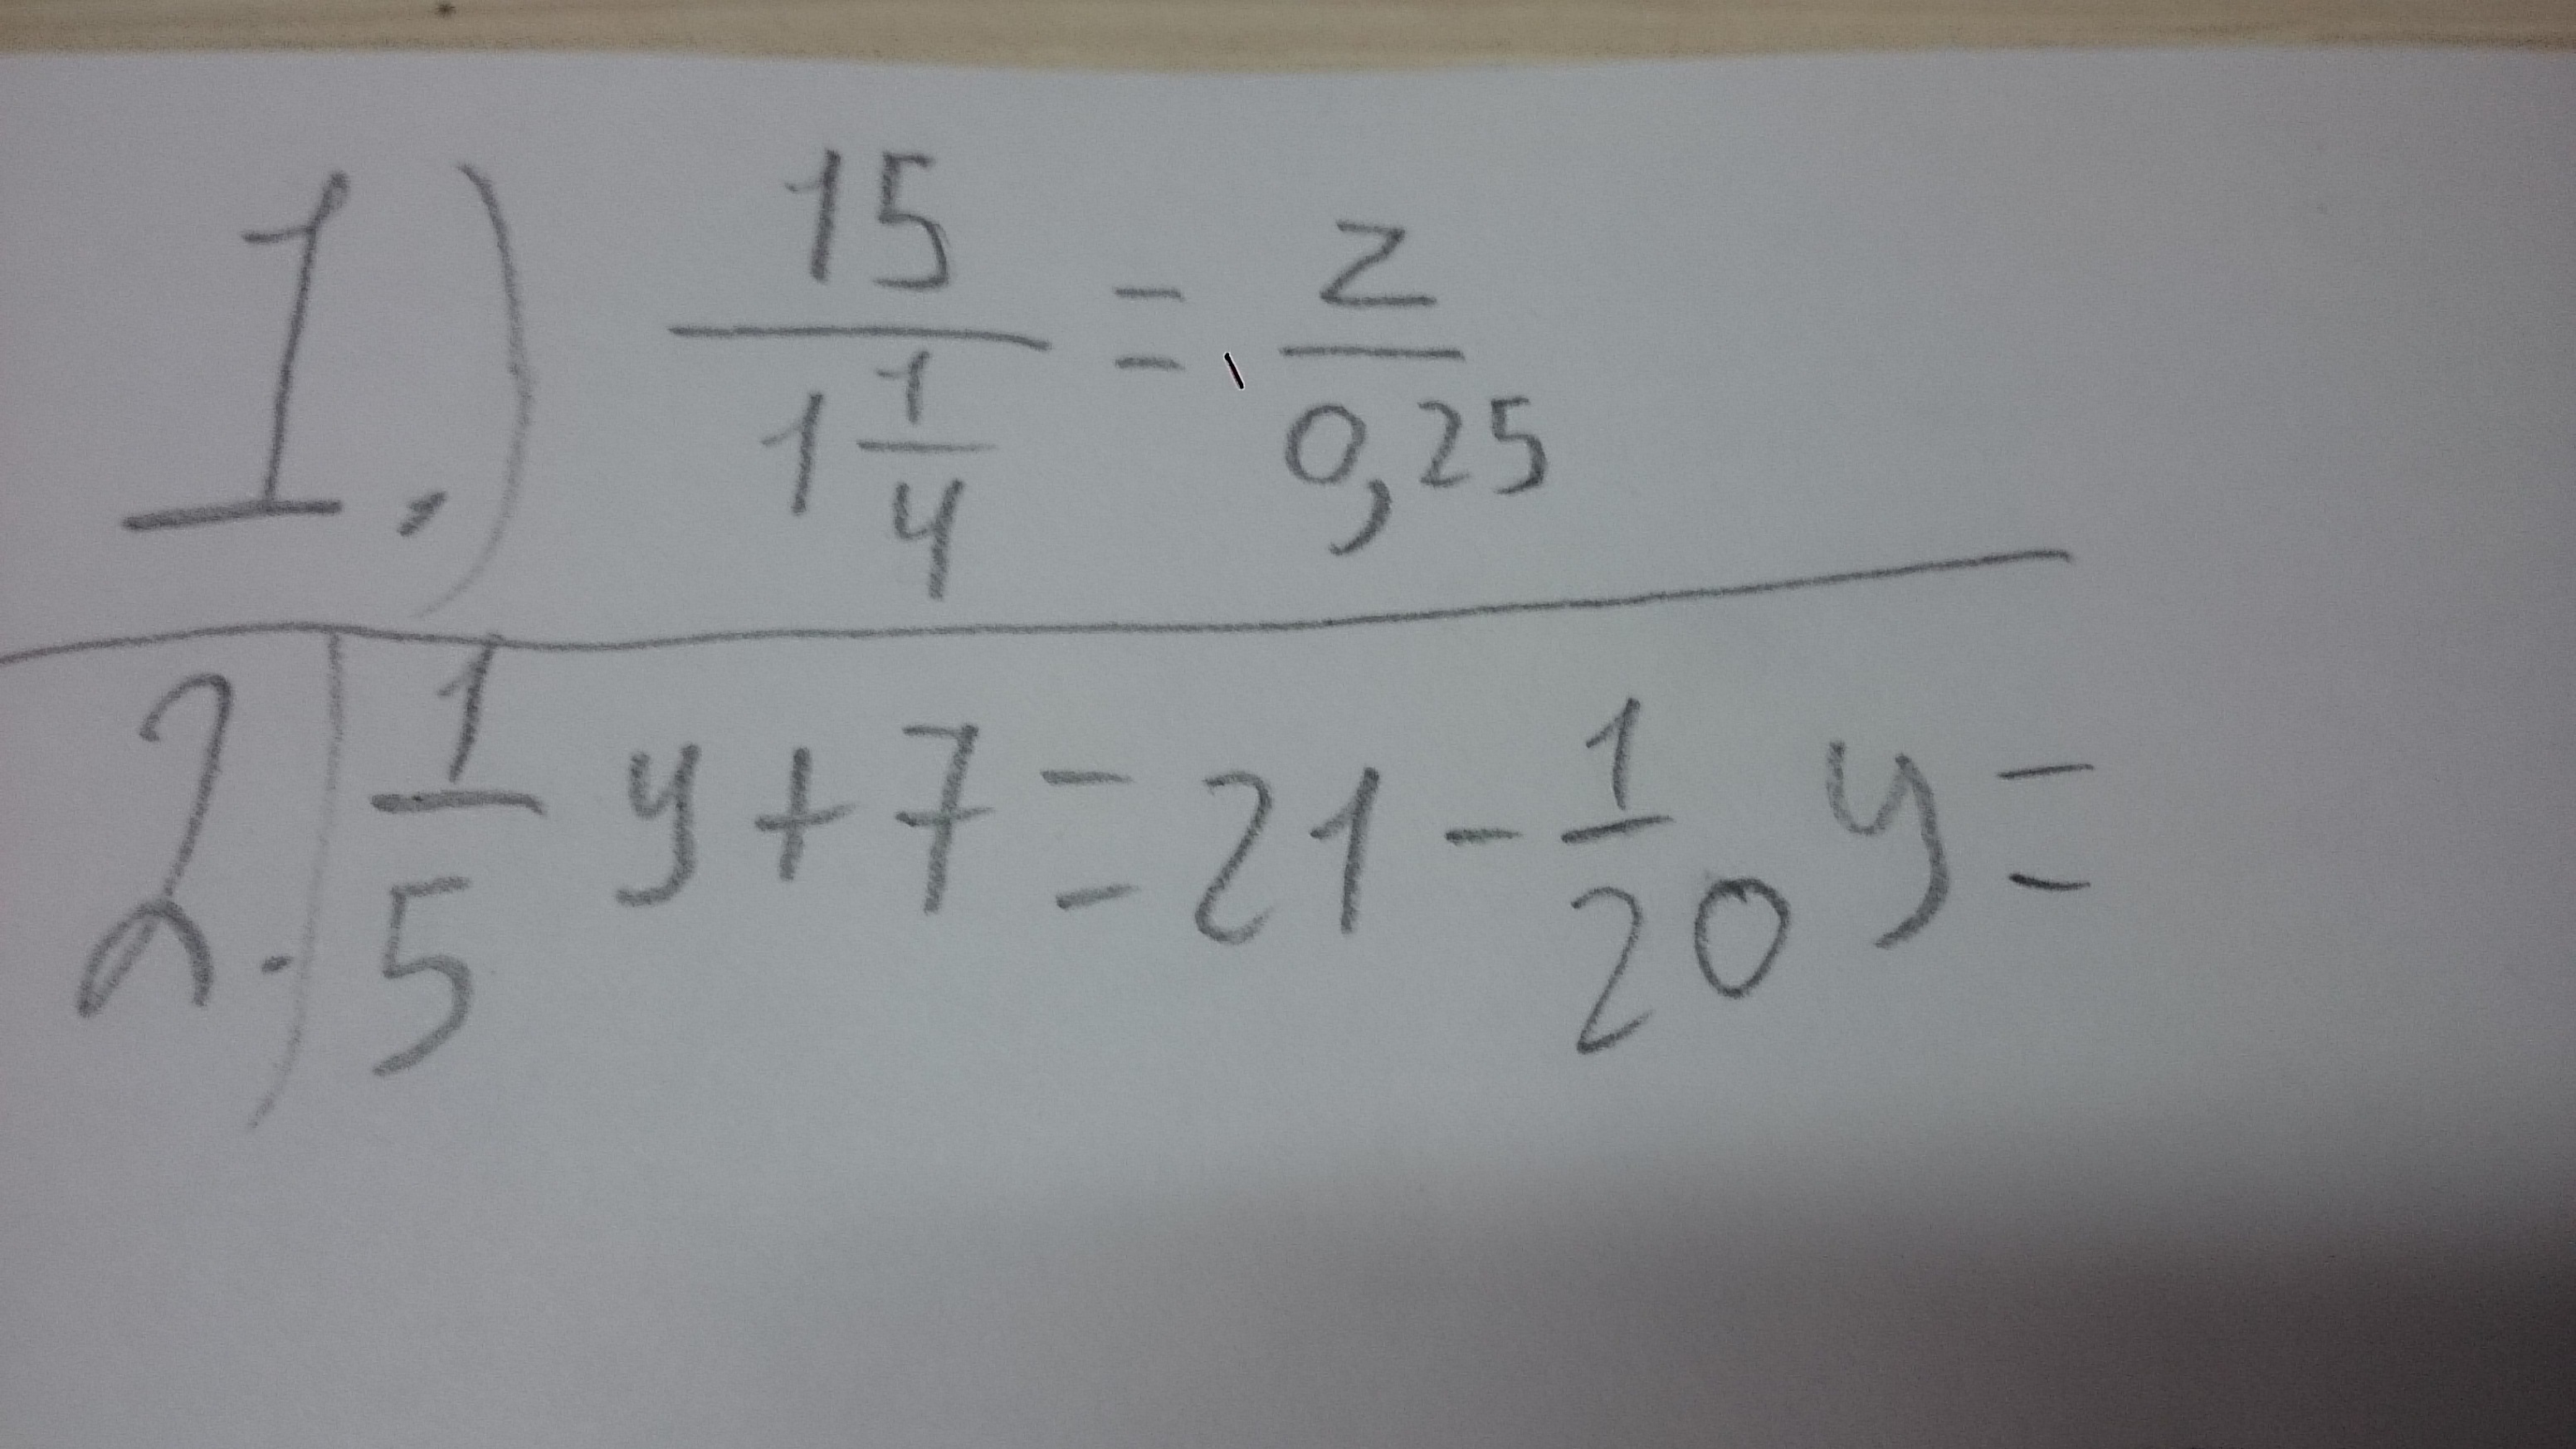 1.) 15/(1 1/4) = z/0,25
2.) 1/5 y + 7 = 21 - 1/20 y =